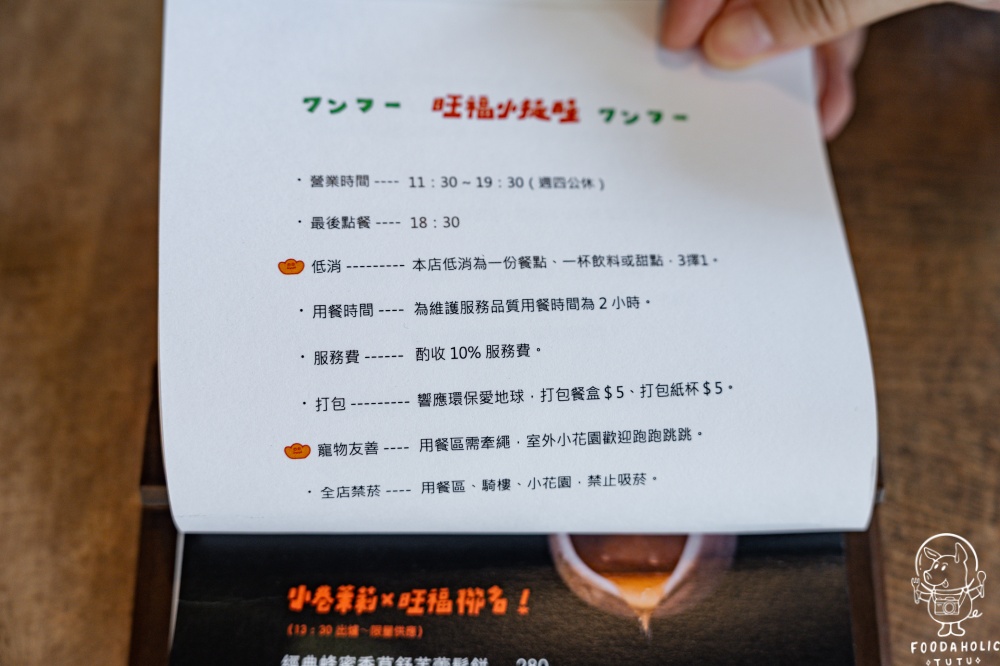 ワンフー 旺福小提醒 ワンフー
· 營業時間 ---- 11：30 ~ 19：30 ( 週四公休 )
· 最後點餐 ---- 18：30
低消 --------- 本店低消為一份餐點、一杯飲料或甜點，3擇1。
· 用餐時間 ---- 為維護服務品質用餐時間為 2 小時。
· 服務費 ------ 酌收 10% 服務費。
· 打包 --------- 響應環保愛地球，打包餐盒 $ 5、打包紙杯 $ 5。
寵物友善 ---- 用餐區需牽繩，室外小花園歡迎跑跑跳跳。
· 全店禁菸 ---- 用餐區、騎樓、小花園，禁止吸菸。
小卷茉莉×旺福聯名！
(13：30 出爐~限量供應)
經典蜂蜜香草舒芙蕾鬆餅 280
FOODAHOLIC
TUTU